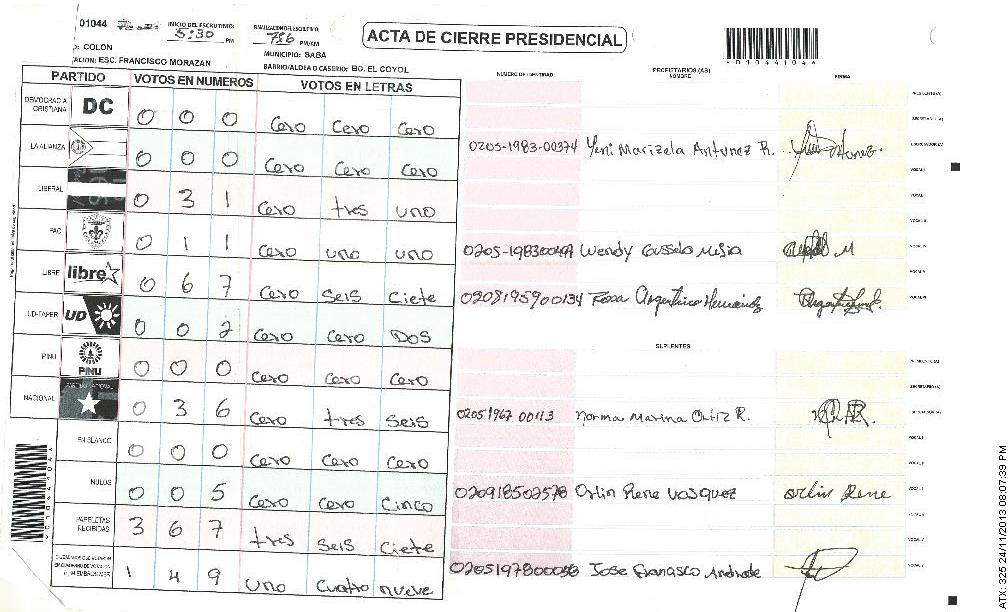 01044 INICIO DEL ESCRUTINIO: 5:30 PM PM/AM
ACTA DE CIERRE PRESIDENCIAL
: COLON MUNICIPIO: SABA
ACION: ESC. FRANCISCO MORAZAN BARRIO/ALDEA O CASERIO: BO. EL COYOL
PARTIDO VOTOS EN NUMEROS VOTOS EN LETRAS
NUMERO DE IDENTIDAD PROPIETARIOS (AS) NOMBRE FIRMA
DEMOCRACIA CRISTIANA DC 0 0 0 Cero Cero Cero
LA ALIANZA 0 0 0 Cero Cero Cero
0205-1983-00374 Yeni Marizela Antunez R.
LIBERAL 0 3 1 Cero tres uno
PAC 0 1 1 Cero uno uno
Wendy
LIBRE libre 0 6 7 Cero Seis Ciete
0208195900134 Rosa Argentina Hernández
UD-FAPER UD 0 0 2 Cero Cero Dos
SUPLENTES
PINU PINU 0 0 0 Cero Cero Cero
NACIONAL 0 3 6 Cero tres Seis
02051967 00113 Norma Marina Ortiz R.
EN BLANCO 0 0 0 Cero Cero Cero
NULOS 0 0 5 Cero Cero Cinco
020918502578 Orlin Rene Vasquez Orlin Rene
PAPELETAS RECIBIDAS 3 6 7 tres Seis Ciete
CIUDADANOS QUE VOTARON 1 4 9 uno Cuatro nueve
Jose Fransasco Andrade
ATX: 325 24/11/2013 08:07:39 PM